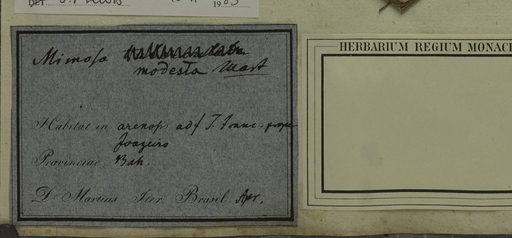 HERBARIUM REGIUM MONAC
Mimosa
modesta Mart
Habitat in arenos. ad f. S. Franc. prope
Joazeiro
Provinciae Bah.
D. Martius Iter Brasil. Apr.